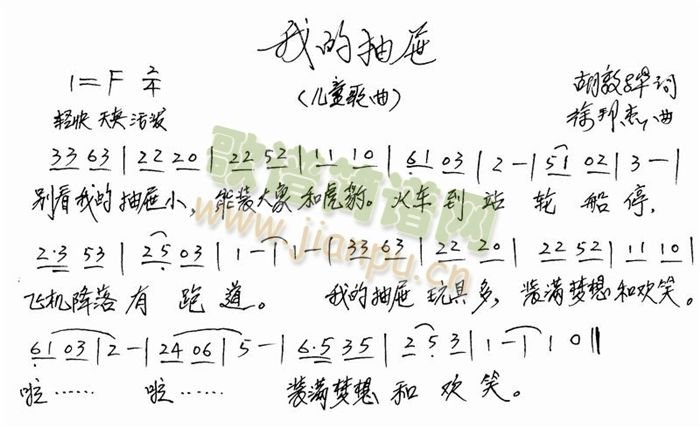 我的抽屉
(儿童歌曲)
1=F 2/4
胡敦骅词
轻快 天真 活泼
徐邦杰曲
33 63 | 22 20 | 22 52 | 11 10 | 61 03 | 2 - | 51 02 | 3 - |
别看我的抽屉小,能装大象和虎豹。火车到站轮船停,
2·3 53 | 25 03 | 1 - | 1 - | 33 63 | 22 20 | 22 52 | 11 10 |
飞机降落有跑道。我的抽屉玩具多,装满梦想和欢笑。
61 03 | 2 - | 24 06 | 5 - | 6·5 35 | 2 5 3 | 1 - | 1 0 ‖
啦…… 啦…… 装满梦想和欢笑。
歌谱简谱网
www.jianpu.cn